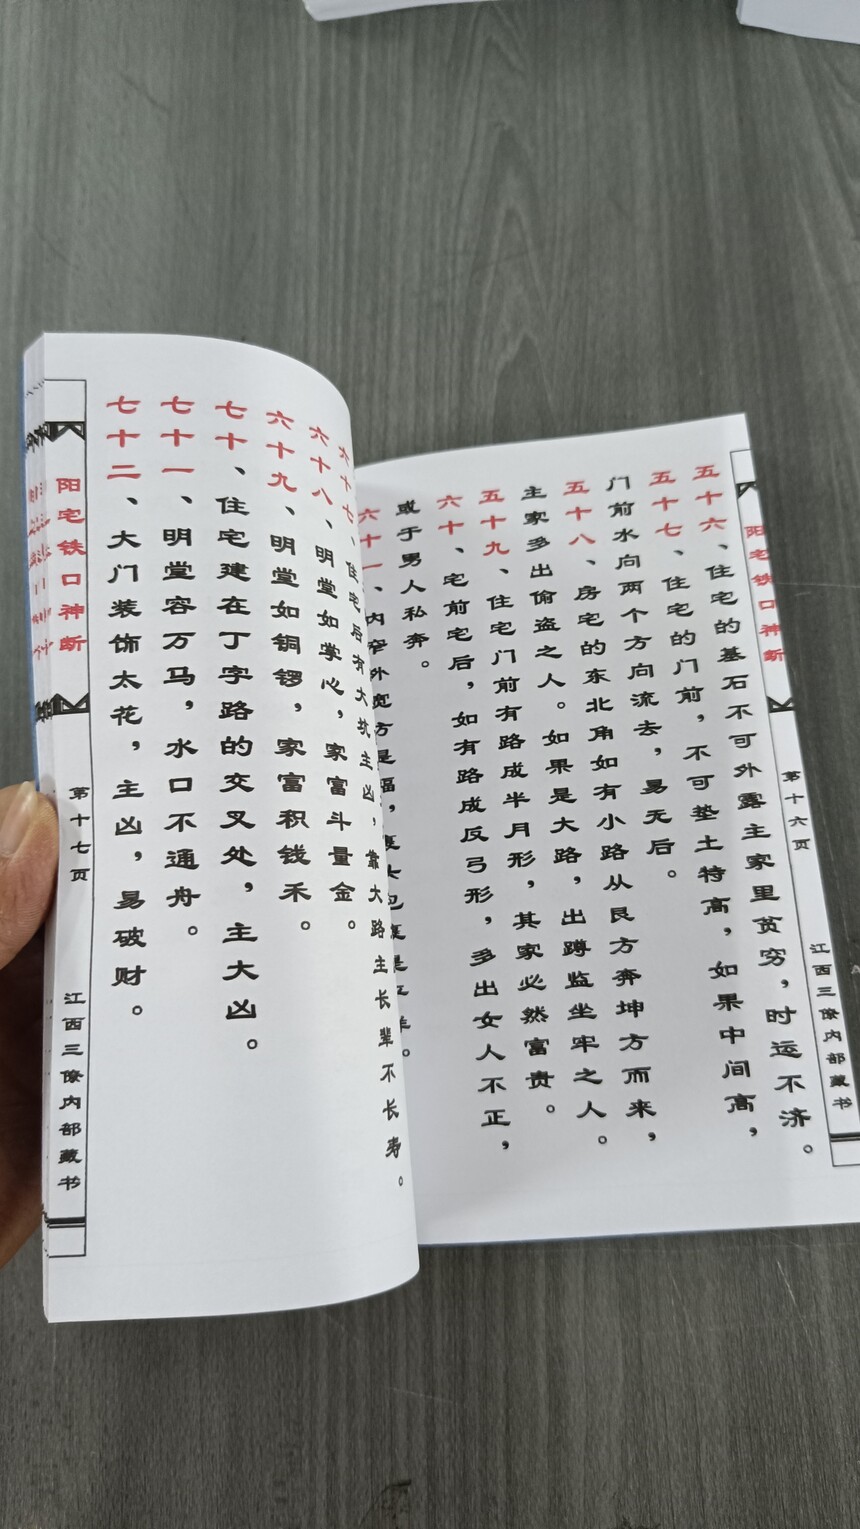 阳宅铁口神断
第十六页
江西三僚内部藏书
五十六、住宅的基石不可外露主家里贫穷，时运不济。
五十七、住宅的门前，不可垫土特高，如果中间高，
门前水向两个方向流去，易无后。
五十八、房宅的东北角如有小路从艮方奔坤方而来，
主家多出偷盗之人。如果是大路，出蹲监坐牢之人。
五十九、住宅门前有路成半月形，其家必然富贵。
六十、宅前宅后，如有路成反弓形，多出女人不正，
或于男人私奔。
六十一、内窄外宽方是福，
六十七、住宅后有大坑主凶，靠大路生长辈不长寿。
六十八、明堂如掌心，家富斗量金。
六十九、明堂如铜锣，家富积钱禾。
七十、住宅建在丁字路的交叉处，主大凶。
七十一、明堂容万马，水口不通舟。
七十二、大门装饰太花，主凶，易破财。
阳宅铁口神断
第十七页
江西三僚内部藏书